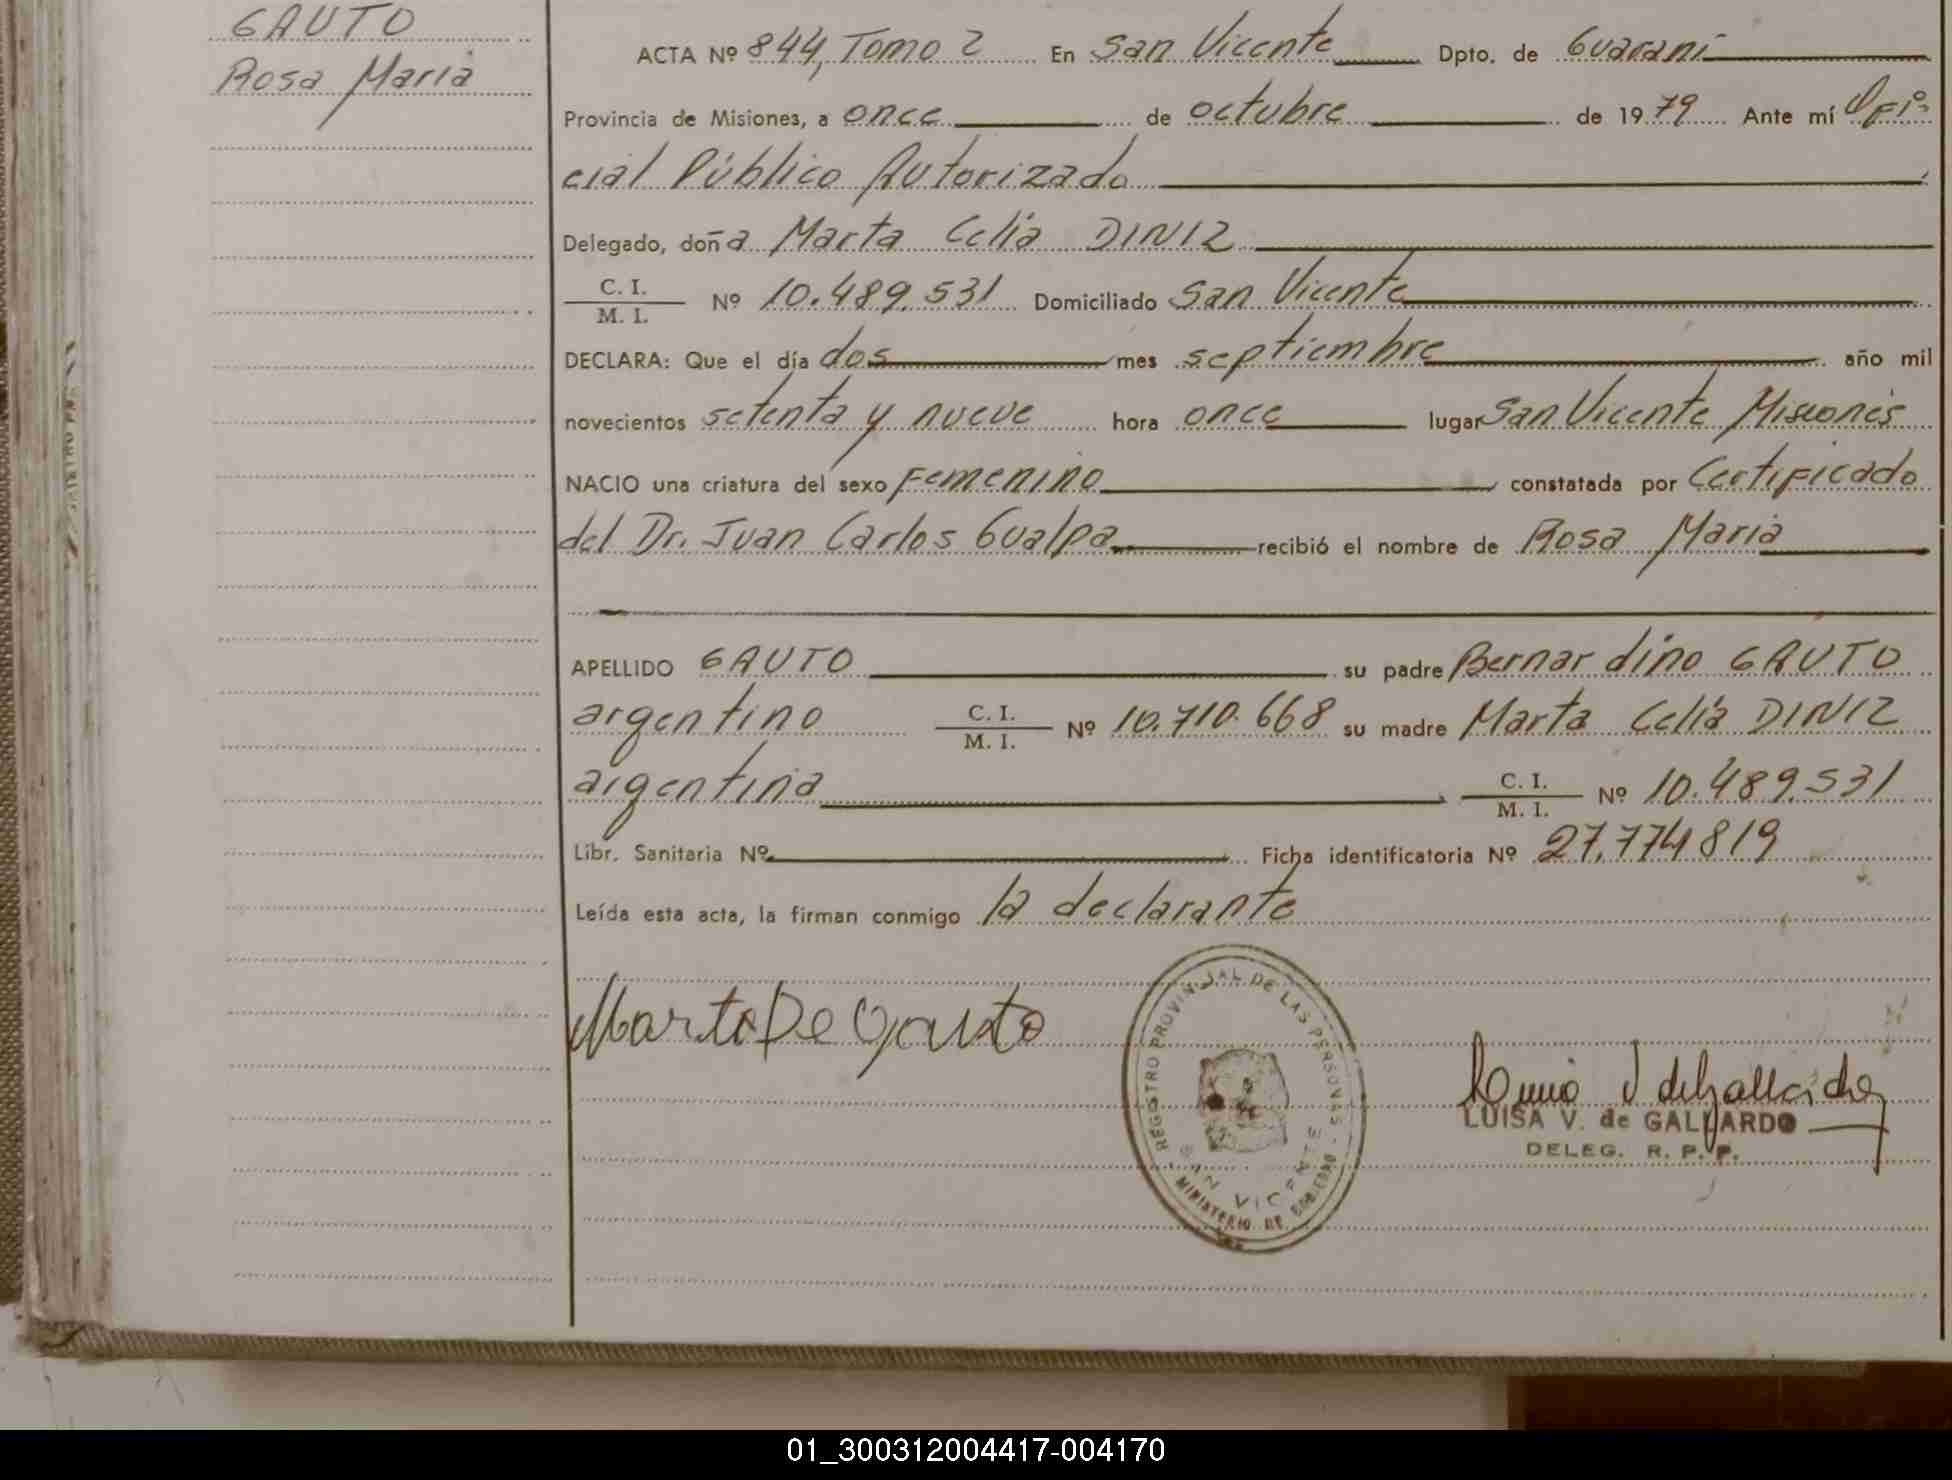 GAUTO
Rosa María
ACTA Nº 844, Tomo 2 En San Vicente Dpto. de Guaraní
Provincia de Misiones, a once de octubre de 1979 Ante mí Ofi-
cial Público Autorizado
Delegado, doña Marta Celia DINIZ
C. I.
M. I. Nº 10.489.531 Domiciliado San Vicente
DECLARA: Que el día dos mes septiembre año mil
novecientos setenta y nueve hora once lugar San Vicente Misiones
NACIO una criatura del sexo Femenino constatada por Certificado
del Dr. Juan Carlos Gualpa recibió el nombre de Rosa María
APELLIDO GAUTO su padre Bernardino GAUTO
argentino C. I. M. I. Nº 10.710.668 su madre Marta Celia DINIZ
argentina C. I. M. I. Nº 10.489.531
Libr. Sanitaria Nº Ficha identificatoria Nº 27.774819
Leída esta acta, la firman conmigo la declarante
Marta De Gauto
REGISTRO PROVINCIAL DE LAS PERSONAS - MINISTERIO DE GOBIERNO
SAN VICENTE
LUISA V. de GALLARDO
DELEG. R. P. P.
01_300312004417-004170